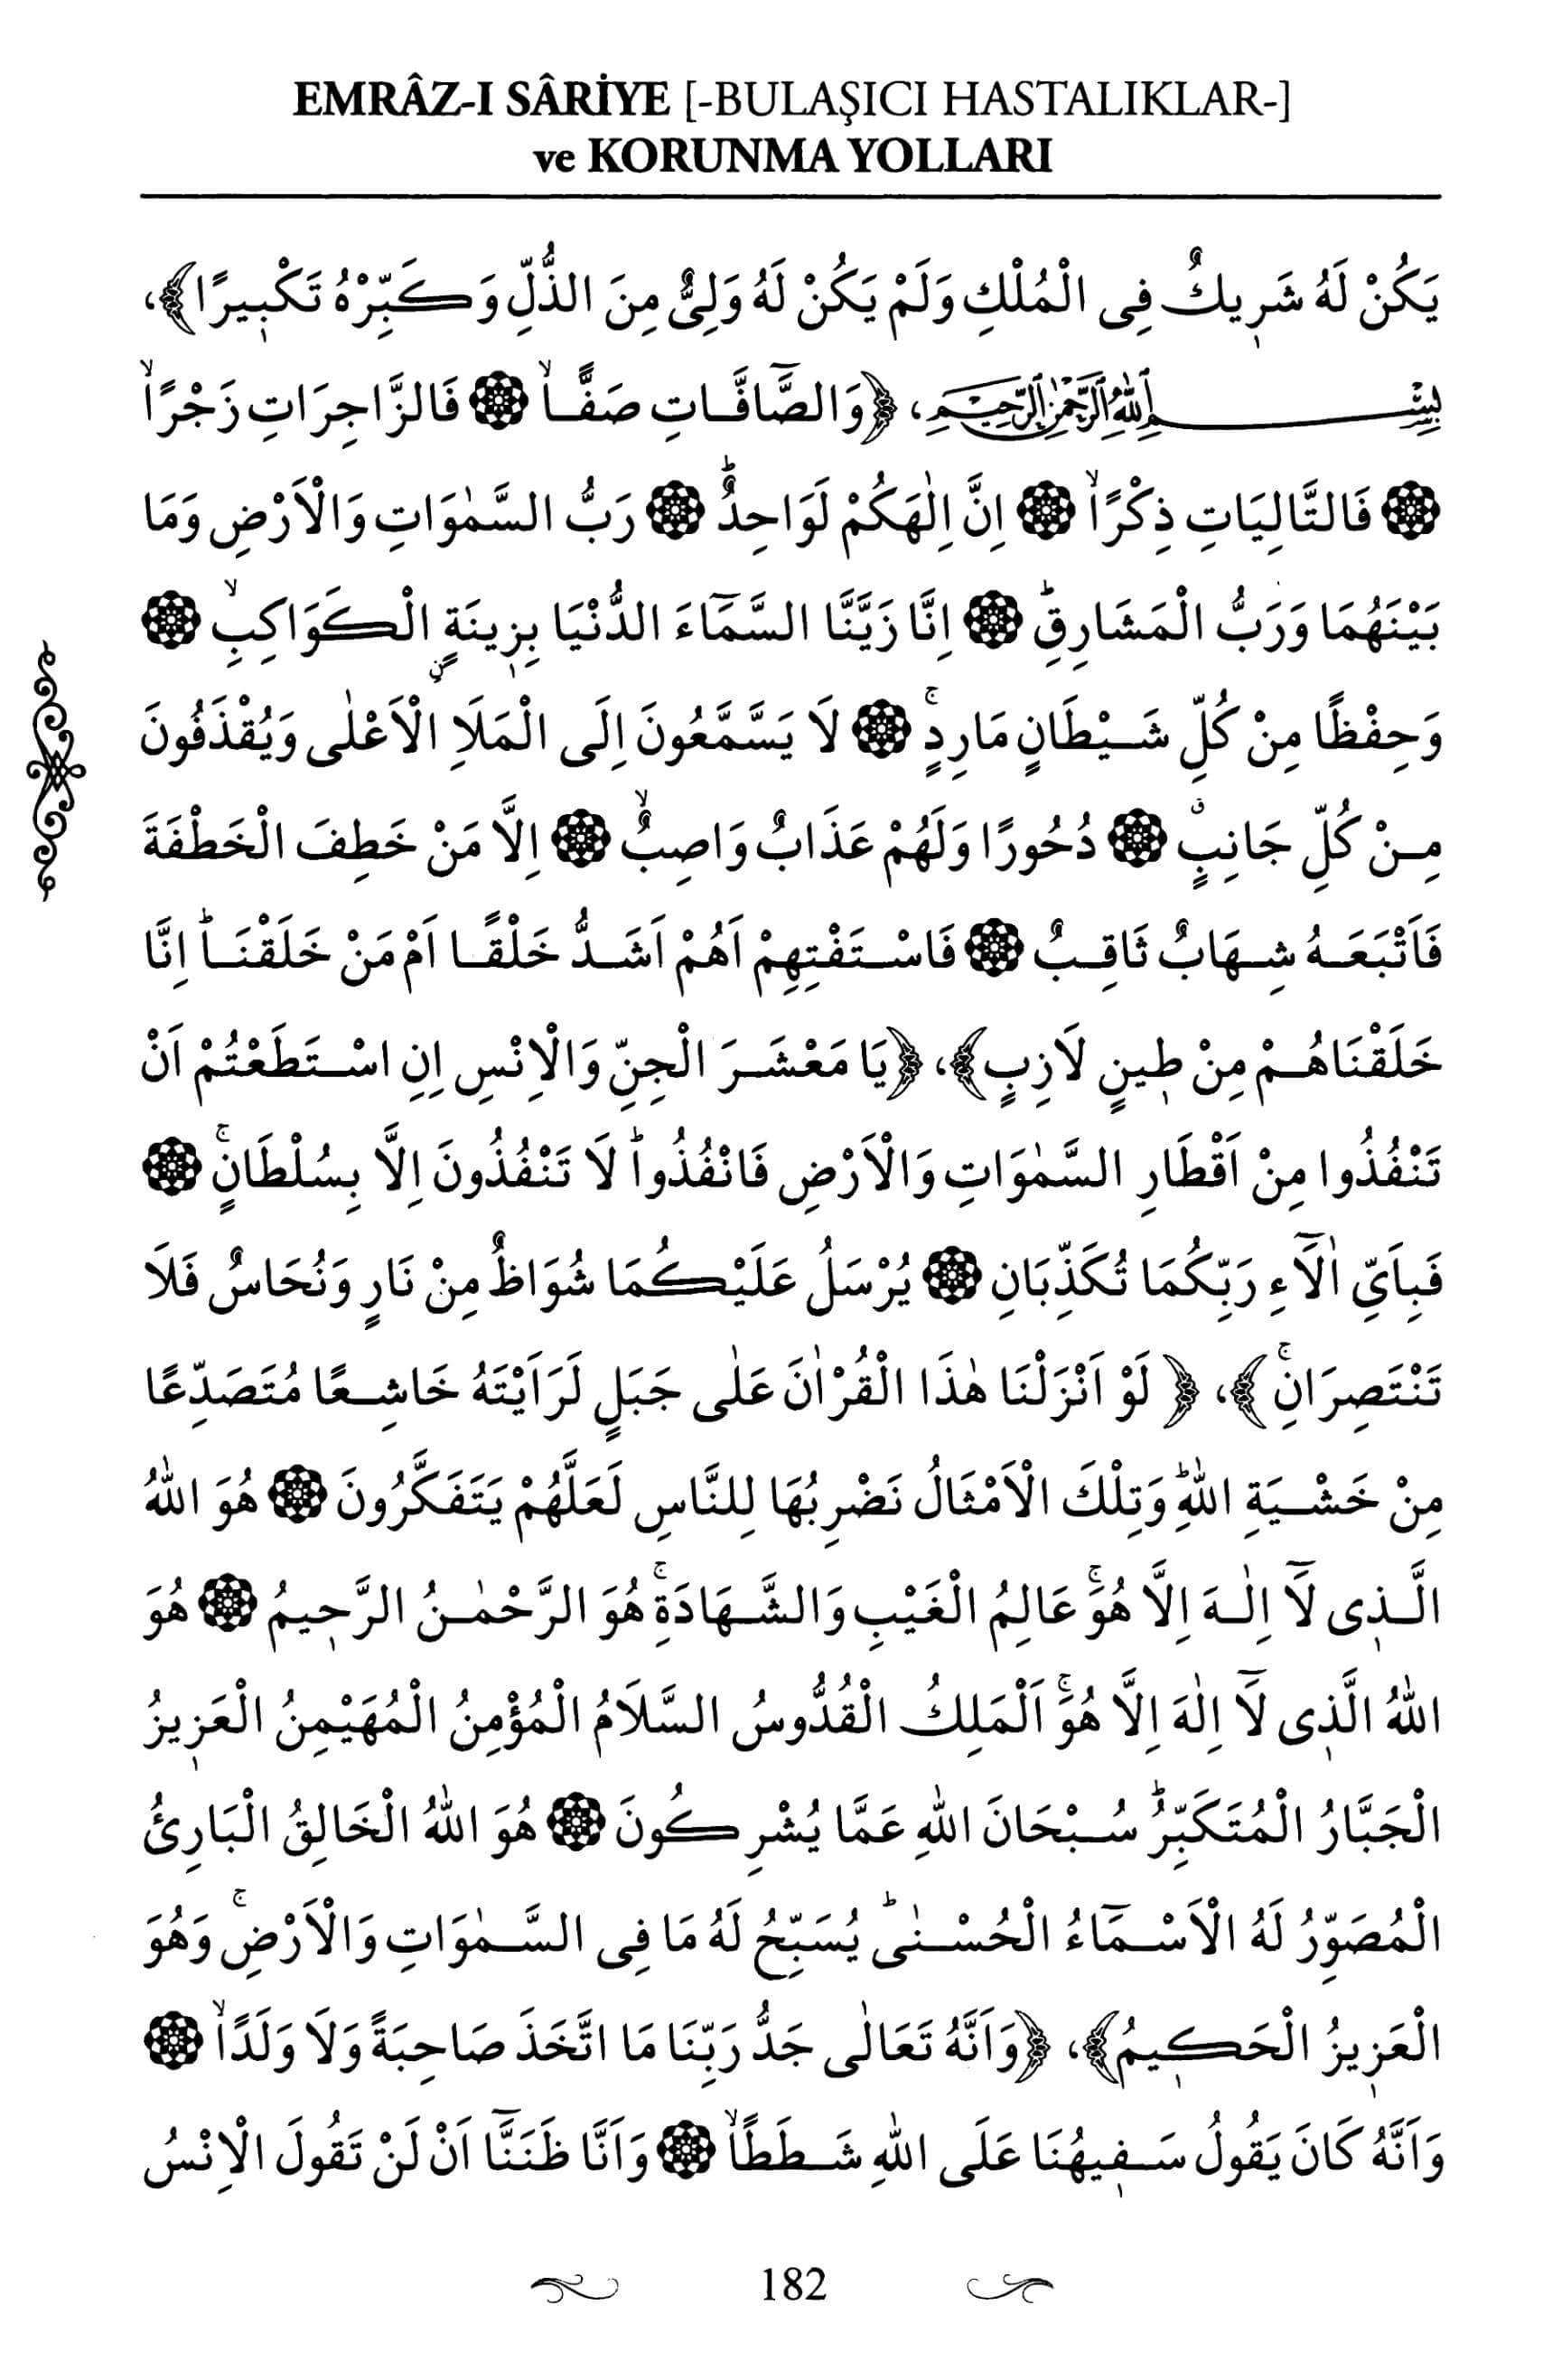 EMRÂZ-I SÂRİYE [-BULAŞICI HASTALIKLAR-]
ve KORUNMA YOLLARI
يَكُنْ لَهُ شَرٖيكٌ فِى الْمُلْكِ وَلَمْ يَكُنْ لَهُ وَلِىٌّ مِنَ الذُّلِّ وَكَبِّرْهُ تَكْبٖيرًا﴾،
بِسْمِ اللهِ الرَّحْمٰنِ الرَّحِيمِ، ﴿وَالصَّٓافَّاتِ صَفًّاۙ ۞ فَالزَّاجِرَاتِ زَجْرًاۙ
۞ فَالتَّالِيَاتِ ذِكْرًاۙ ۞ اِنَّ اِلٰهَكُمْ لَوَاحِدٌؕ ۞ رَبُّ السَّمٰوَاتِ وَالْاَرْضِ وَمَا
بَيْنَهُمَا وَرَبُّ الْمَشَارِقِؕ ۞ اِنَّا زَيَّنَّا السَّمَٓاءَ الدُّنْيَا بِزٖينَةٍۨ الْكَوَاكِبِۙ ۞
وَحِفْظًا مِنْ كُلِّ شَيْطَانٍ مَارِدٍۚ ۞ لَا يَسَّمَّعُونَ اِلَى الْمَلَاِ الْاَعْلٰى وَيُقْذَفُونَ
مِنْ كُلِّ جَانِبٍۗ ۞ دُحُورًا وَلَهُمْ عَذَابٌ وَاصِبٌۙ ۞ اِلَّا مَنْ خَطِفَ الْخَطْفَةَ
فَاَتْبَعَهُ شِهَابٌ ثَاقِبٌ ۞ فَاسْتَفْتِهِمْ اَهُمْ اَشَدُّ خَلْقًا اَمْ مَنْ خَلَقْنَاؕ اِنَّا
خَلَقْنَاهُمْ مِنْ طٖينٍ لَازِبٍ﴾، ﴿يَا مَعْشَرَ الْجِنِّ وَالْاِنْسِ اِنِ اسْتَطَعْتُمْ اَنْ
تَنْفُذُوا مِنْ اَقْطَارِ السَّمٰوَاتِ وَالْاَرْضِ فَانْفُذُواؕ لَا تَنْفُذُونَ اِلَّا بِسُلْطَانٍۚ ۞
فَبِاَىِّ اٰلَٓاءِ رَبِّكُمَا تُكَذِّبَانِ ۞ يُرْسَلُ عَلَيْكُمَا شُوَاظٌ مِنْ نَارٍ وَنُحَاسٌ فَلَا
تَنْتَصِرَانِۚ﴾، ﴿لَوْ اَنْزَلْنَا هٰذَا الْقُرْاٰنَ عَلٰى جَبَلٍ لَرَاَيْتَهُ خَاشِعًا مُتَصَدِّعًا
مِنْ خَشْيَةِ اللهِؕ وَتِلْكَ الْاَمْثَالُ نَضْرِبُهَا لِلنَّاسِ لَعَلَّهُمْ يَتَفَكَّرُونَ ۞ هُوَ اللهُ
الَّذٖى لَٓا اِلٰهَ اِلَّا هُوَۚ عَالِمُ الْغَيْبِ وَالشَّهَادَةِۚ هُوَ الرَّحْمٰنُ الرَّحٖيمُ ۞ هُوَ
اللهُ الَّذٖى لَٓا اِلٰهَ اِلَّا هُوَۚ اَلْمَلِكُ الْقُدُّوسُ السَّلَامُ الْمُؤْمِنُ الْمُهَيْمِنُ الْعَزٖيزُ
الْجَبَّارُ الْمُتَكَبِّرُؕ سُبْحَانَ اللهِ عَمَّا يُشْرِكُونَ ۞ هُوَ اللهُ الْخَالِقُ الْبَارِئُ
الْمُصَوِّرُ لَهُ الْاَسْمَٓاءُ الْحُسْنٰىؕ يُسَبِّحُ لَهُ مَا فِى السَّمٰوَاتِ وَالْاَرْضِۚ وَهُوَ
الْعَزٖيزُ الْحَكٖيمُ﴾، ﴿وَاَنَّهُ تَعَالٰى جَدُّ رَبِّنَا مَا اتَّخَذَ صَاحِبَةً وَلَا وَلَدًاۙ ۞
وَاَنَّهُ كَانَ يَقُولُ سَفٖيهُنَا عَلَى اللهِ شَطَطًاۙ ۞ وَاَنَّا ظَنَنَّٓا اَنْ لَنْ تَقُولَ الْاِنْسُ
182